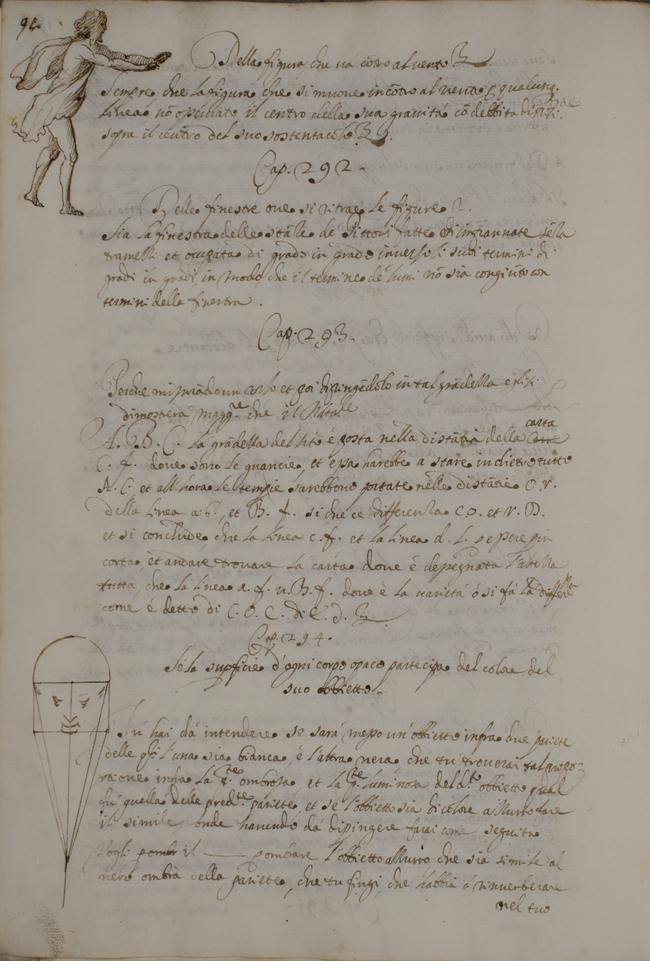 Della figura che và côtro al vento
Sempre che la figura che si muove incôtro al vento p qualunq.
linea nô osservato il centro della sua gravità cô debbita
sopra il centro del suo sostentaculo
Cap. 292.
Delle finestre ove si ritrae le figure
Sia la finestra delle stâze de Pittori fatte d'impannate sêza
tramelli et occupata di grado in grado inverso li suoi termini di
gradi in gradi in modo che il termine de lumi nô sia congiûto con
termini della finestra.
Cap. 293.
Perche misurâdo un viso et poi dipingêdolo in tal grâdezza egli si
dimostera magg.re che il Natale
A. B. C. la grâdezza del sito è posta nella distâtia della carta
C. f. dove sono le guancie, et essa harebbe a stare in dietro tutto
A. C. et all'hora le tempie sarebbono portate nelle distâtie O. r.
della linea a. b., et B. f. si che ce differenza C. O. et r. D.
et si conclude, che la linea c. f. et la linea d. f. se pere piu
corta, et andare trovare la carta dove è depegnata l'altezza
tutta, che la linea a. f. u. B. f. dove è la varietà ò si fà la differêza
come è detto di C. O. C. di r. d.
Cap. 294.
Se la supficie d'ogni corpo opaco partecipa del colore del
suo obbietto.
Tu hai da intendere se sarà messo un'obbietto infra due pariete
delle qli l'una sia bianca, è l'altra nera che tu troverai tal propor-
tione infra la p.te ombrosa, et la p.te luminosa del d.to obbietto qual
fù quella delle pred.te pariete, et se l'obbietto sia di colore azzurro fare
il simile onde havendo da dipingere farai come seguita
Togli il pombrare l'obbietto azzurro che sia simile al
nero ombra della pariete, che tu fingi, che habbia à rinverberare
nel tuo